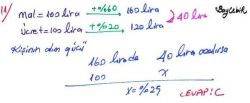 11) Mal = 100 lira +%60 → 160 lira
Ücret = 100 lira +%20 → 120 lira > 40 lira
Kişinin alım gücü
160 lirada 40 lira azalırsa
100 x
x = %25
CEVAP: C